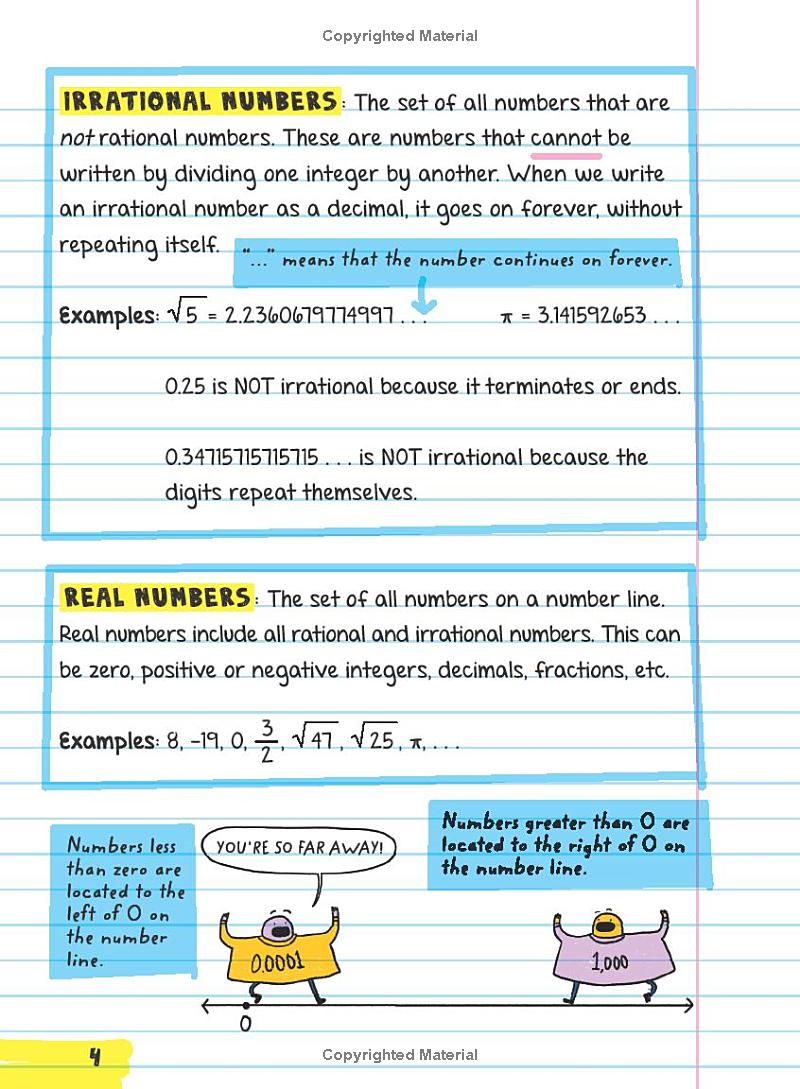 Copyrighted Material
IRRATIONAL NUMBERS: The set of all numbers that are
not rational numbers. These are numbers that cannot be
written by dividing one integer by another. When we write
an irrational number as a decimal, it goes on forever, without
repeating itself.
"..." means that the number continues on forever.
Examples: √5 = 2.2360679774997 . . . π = 3.141592653 . . .
0.25 is NOT irrational because it terminates or ends.
0.34715715715715 . . . is NOT irrational because the
digits repeat themselves.
REAL NUMBERS: The set of all numbers on a number line.
Real numbers include all rational and irrational numbers. This can
be zero, positive or negative integers, decimals, fractions, etc.
Examples: 8, -19, 0, 3/2, √47, √25, π, . . .
Numbers less
than zero are
located to the
left of 0 on
the number
line.
YOU'RE SO FAR AWAY!
Numbers greater than 0 are
located to the right of 0 on
the number line.
0.0001
1,000
0
4
Copyrighted Material